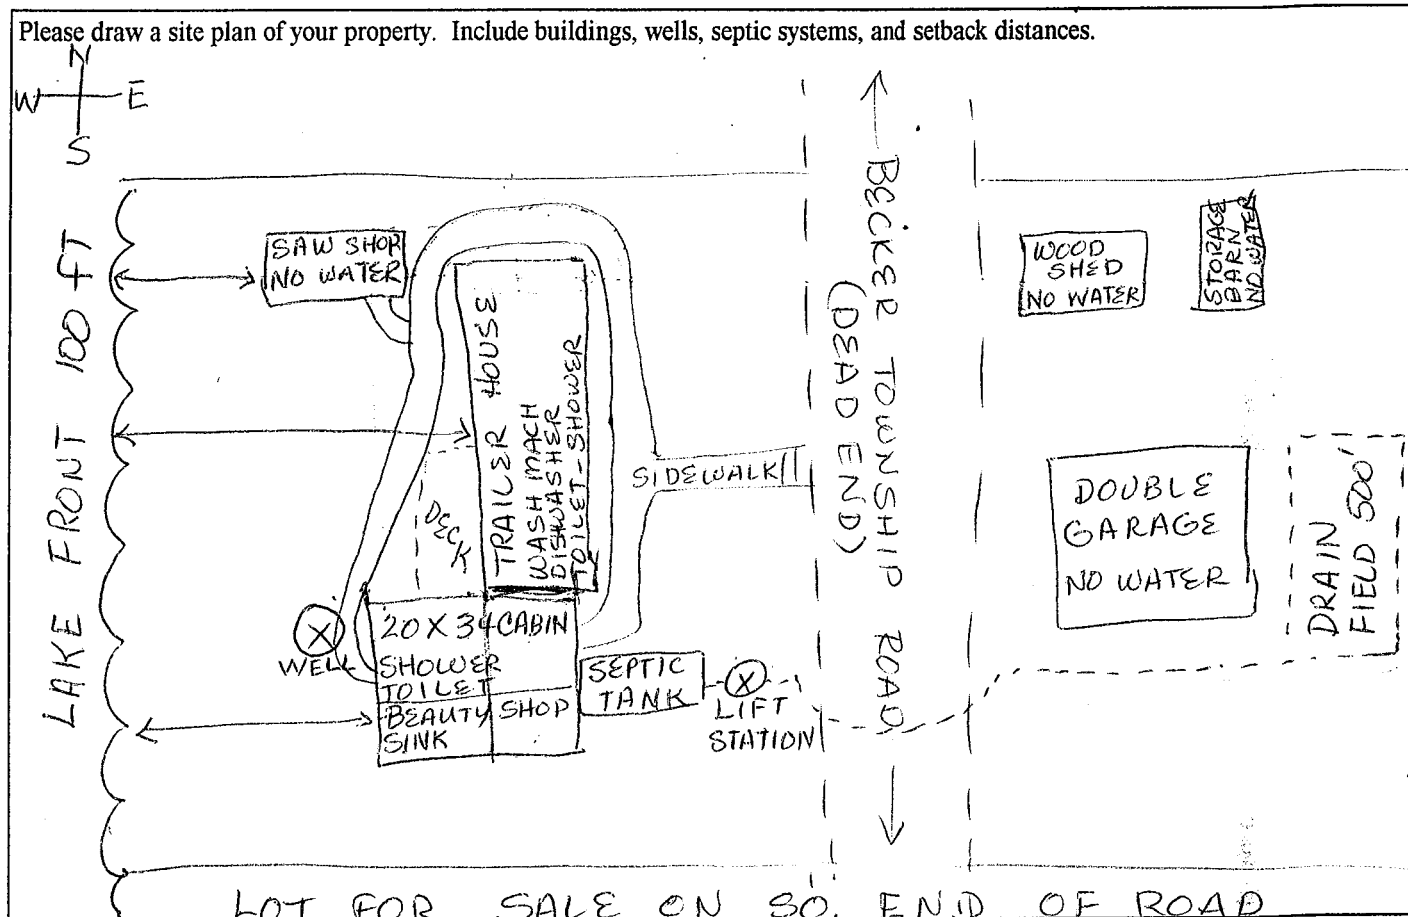 Please draw a site plan of your property. Include buildings, wells, septic systems, and setback distances.
N
W E
S
LAKE FRONT 100 FT
SAW SHOP
NO WATER
TRAILER HOUSE
WASH MACH
DISHWASHER
TOILET-SHOWER
DECK
SIDEWALK
WELL
X
20 X 34 CABIN
SHOWER
TOILET
BEAUTY SHOP
SINK
SEPTIC
TANK
X
LIFT
STATION
BECKER TOWNSHIP ROAD
(DEAD END)
WOOD
SHED
NO WATER
STORAGE
BARN
NO WATER
DOUBLE
GARAGE
NO WATER
DRAIN
FIELD 500'
LOT FOR SALE ON SO. END OF ROAD